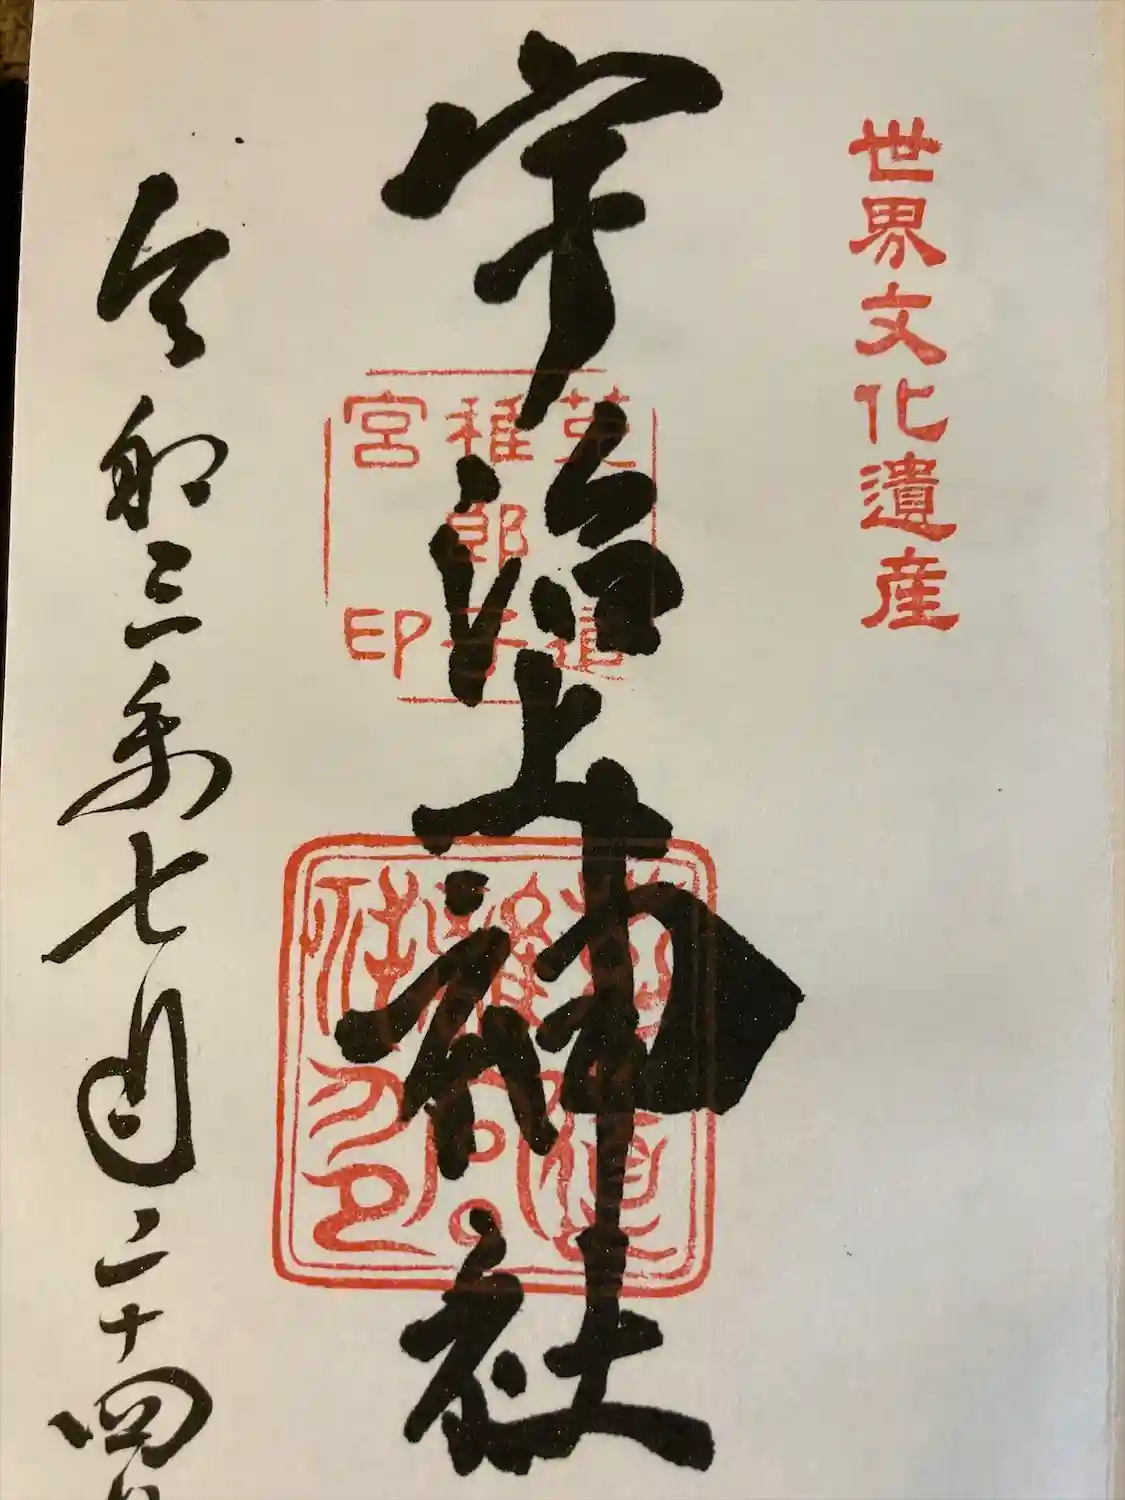 世界文化遺産
宇治上神社
菟道
稚郎子
宮印
令和三年七月二十四日